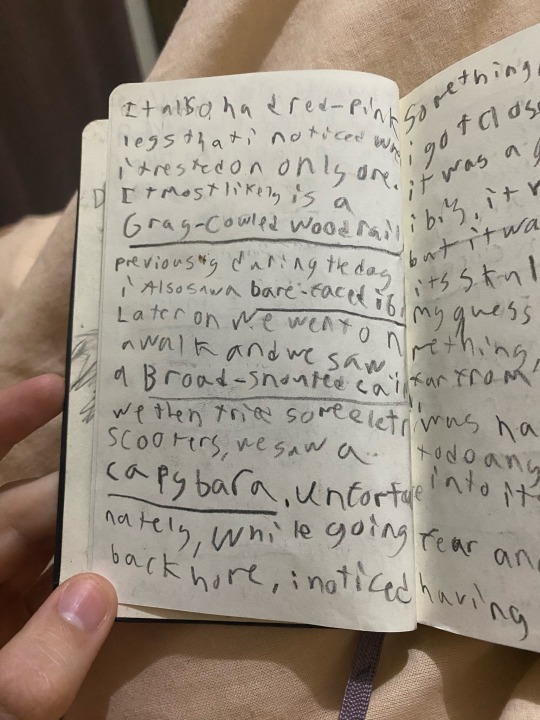 It also had red-pink
legs that i noticed
it rested on only one.
It most likely is a
Gray-Cowled wood rail
previously during the day
i Also saw a bare-faced ib
Later on we went on
a walk and we saw
a Broad-Snouted cai
we then tried some
scooters, we saw a
capybara. Unfortu
nately, while going
back home, i noticed
Something
i got clos
it was a
ibis, it
but it wa
its skul
my guess
rething,
far from
was ha
to do any
into it
fear an
having